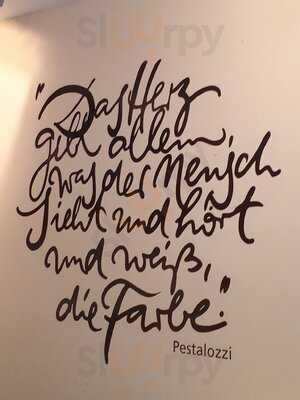 sluurpy
"Das Herz
gibt allem,
was der Mensch
sieht und hört
und weiß,
die Farbe."
Pestalozzi
sluurpy